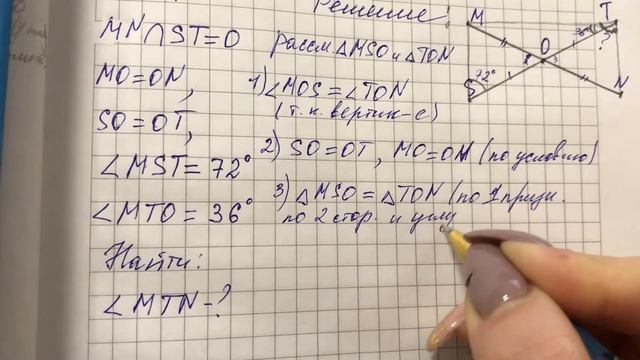 Решение:
MN∩ST=O
MO=ON,
SO=OT,
∠MST=72°
∠MTO=36°
Найти:
∠MTN-?
рассм △MSO и △TON
1) ∠MOS=∠TON
(т.к. вертик-е)
2) SO=OT, MO=ON (по условию)
3) △MSO=△TON (по 1 призн.
по 2 стор. и углу
M
T
O
S
72°
N